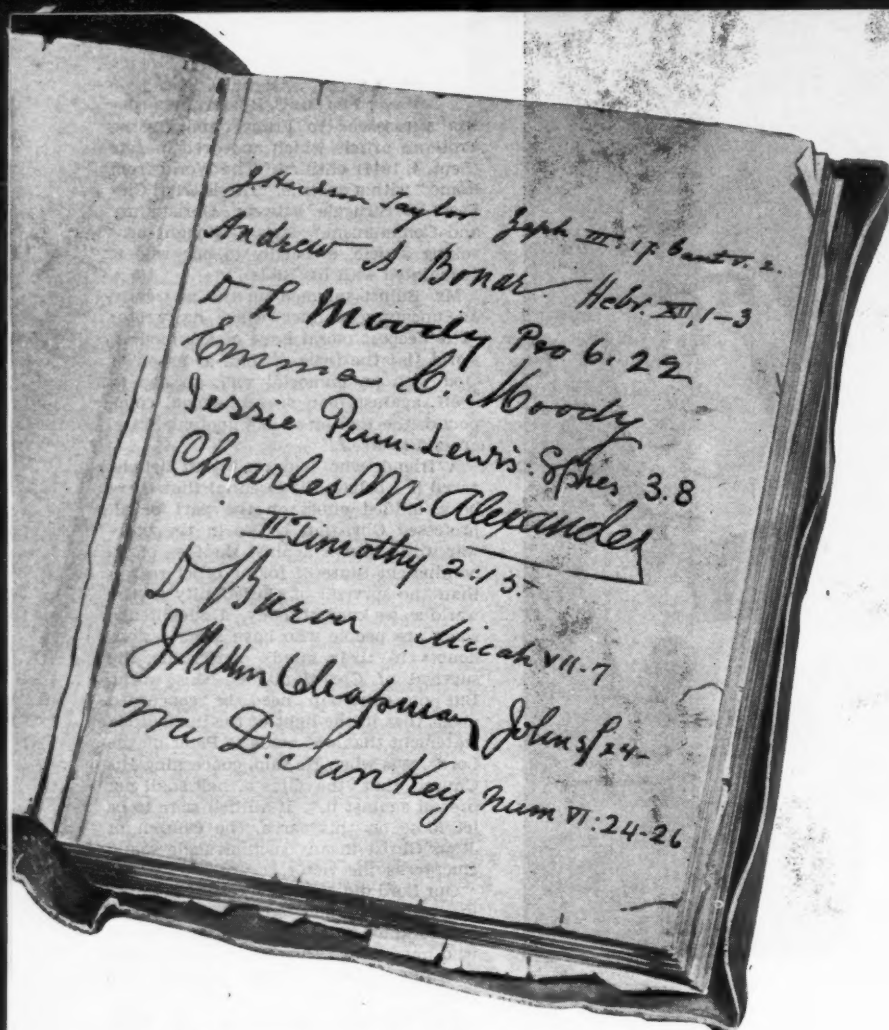 J. Hudson Taylor Zeph III. 17. Cant V. 2.
Andrew A. Bonar. Hebr. XII, 1-3
D L Moody Pro 6. 22
Emma C. Moody
Jessie Penn-Lewis. Ephes 3.8
Charles M. Alexander
II Timothy 2:15.
D Baron Micah VII-7
J Wilbur Chapman John 5/24-
D. Sankey Num VI:24-26